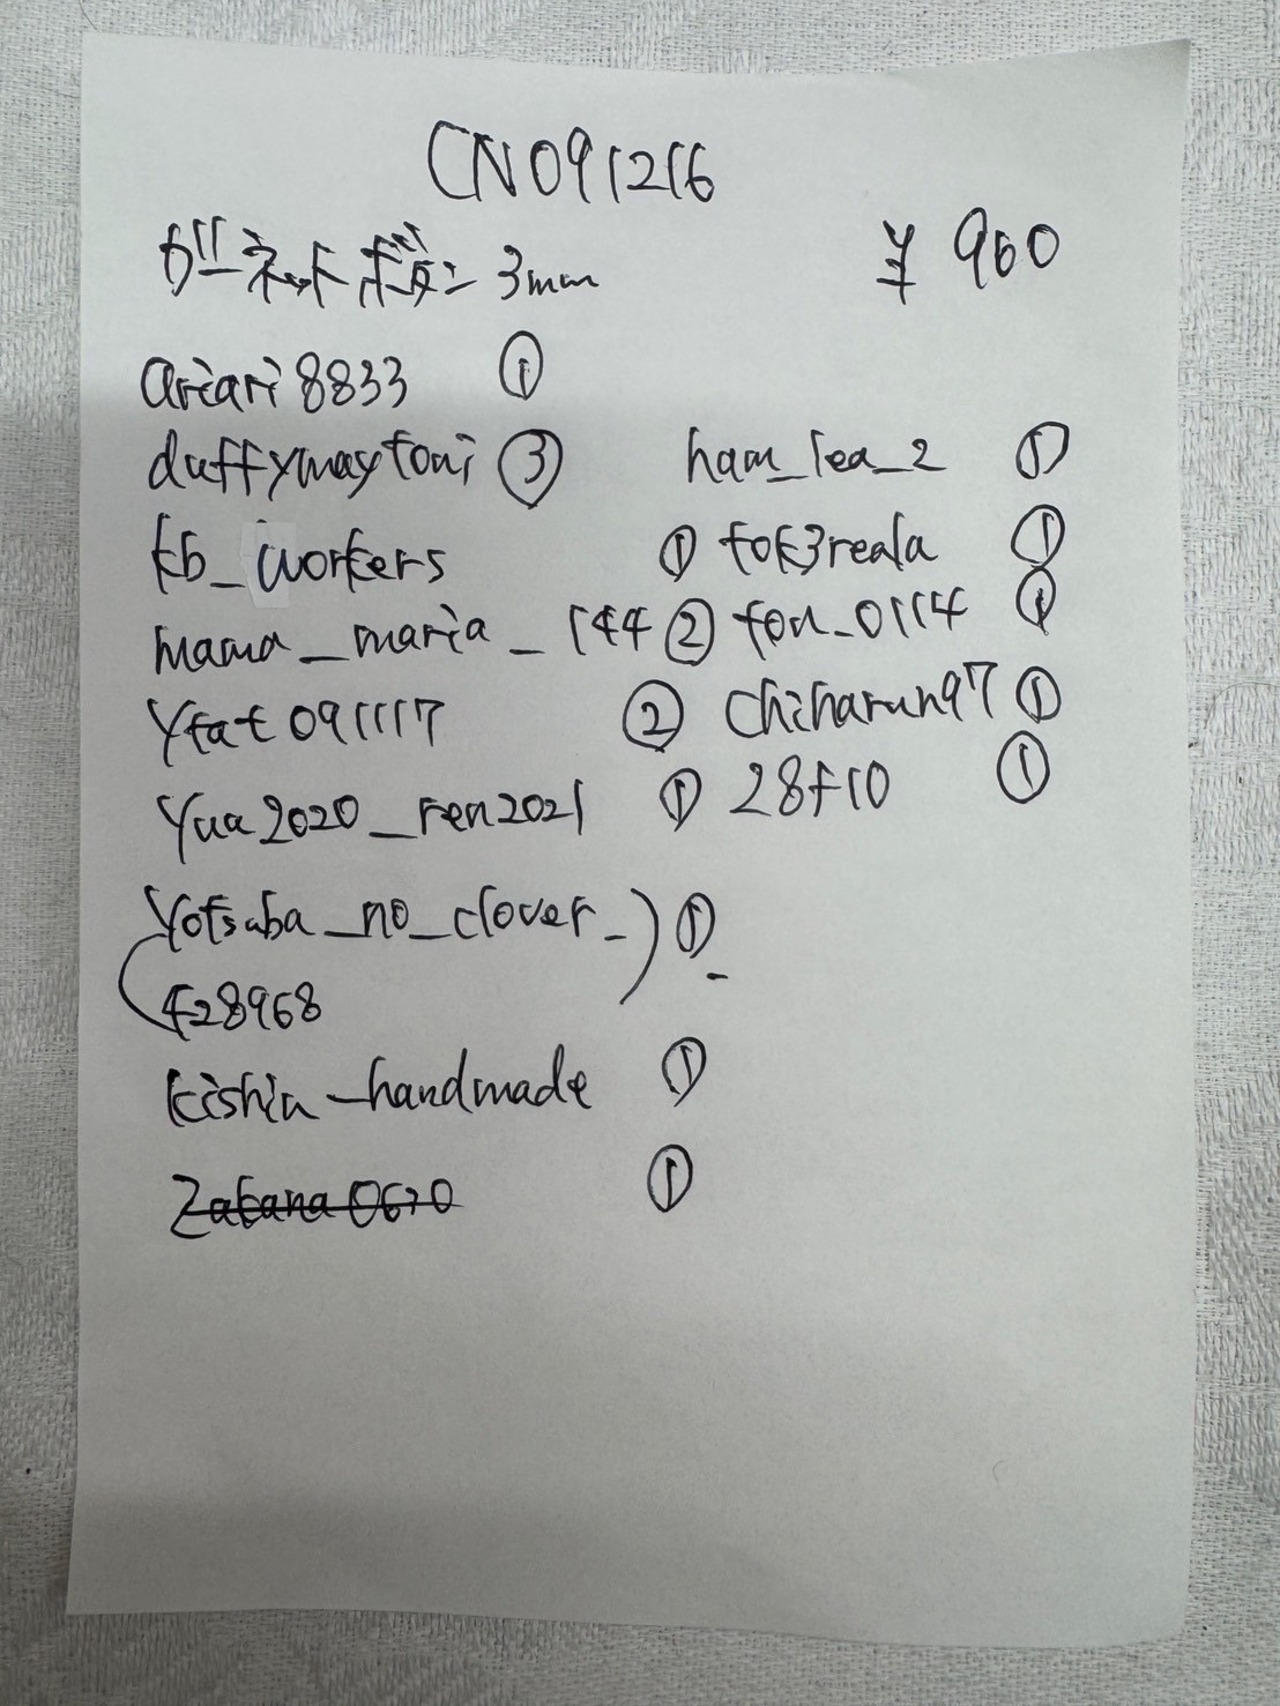 CN091216
ガーネットボタン 3mm ¥960
ariari8833 ①
duffymaytoni ③ ham_lea_2 ①
kb_workers ① tok3reala ①
mama_maria_144 ② ton_0114 ①
ytat091117 ② chiharun97 ①
yua2020_ren2021 ① 28f10 ①
yotsuba_no_clover_ ) ①
(428968
kishin_handmade ①
①